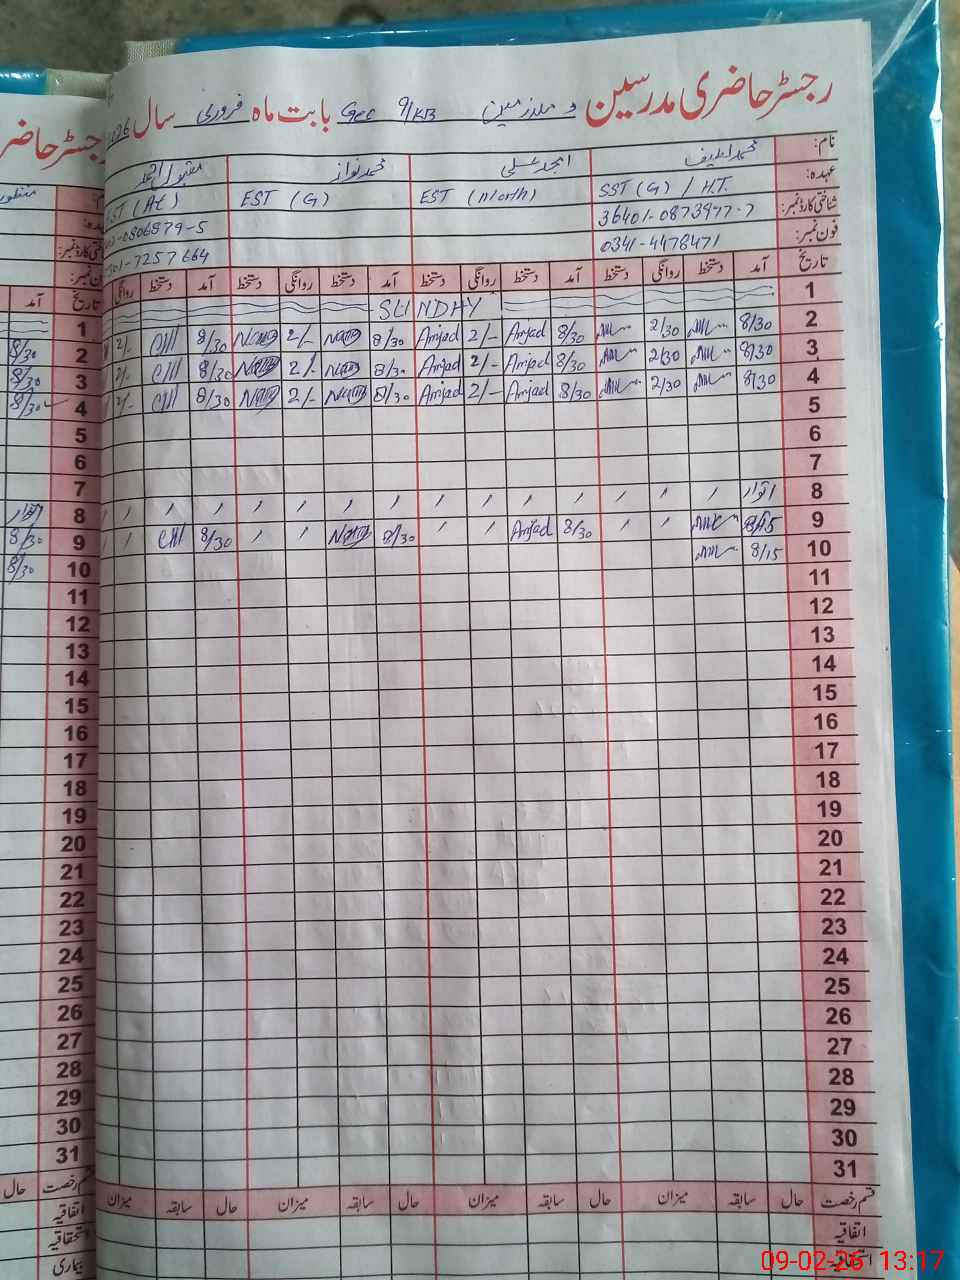 رجسٹر حاضری مدرسین و ملازمین Gec 9/KB بابت ماہ فروری سال 2026
نام: محمد لطیف امجد علی محمد نواز مقبول احمد
عہدہ: SST (G) / H.T. EST (morth) EST (G) EST (At)
شناختی کارڈ نمبر: 36401-0873977-7
فون نمبر: 0341-4478471
تاریخ آمد دستخط روانگی دستخط آمد دستخط روانگی دستخط آمد دستخط روانگی دستخط آمد دستخط روانگی
1 SUNDAY
2 8/30 2/30 8/30 Amjad 2/- Amjad 8/30 Nawaz 2/- Nawaz 8/30 2/-
3 8/30 2/30 8/30 Amjad 2/- Amjad 8/30 Nawaz 2/- Nawaz 8/30 2/-
4 8/30 2/30 8/30 Amjad 2/- Amjad 8/30 Nawaz 2/- Nawaz 8/30 2/-
5
6
7
8 اتوار
9 8/15 8/30 Amjad 8/30 Nawaz 8/30
10 8/15
11
12
13
14
15
16
17
18
19
20
21
22
23
24
25
26
27
28
29
30
31
قسم رخصت حال سابقہ میزان حال سابقہ میزان حال سابقہ میزان حال سابقہ میزان
اتفاقیہ
استحقاقیہ
رجسٹر حاضر
تاریخ آمد
1
2 8/30
3 8/30
4 8/30
5
6
7
8 اتوار
9 8/30
10 8/30
11
12
13
14
15
16
17
18
19
20
21
22
23
24
25
26
27
28
29
30
31
قسم رخصت حال
اتفاقیہ
استحقاقیہ
بیماری
09-02-26 13:17